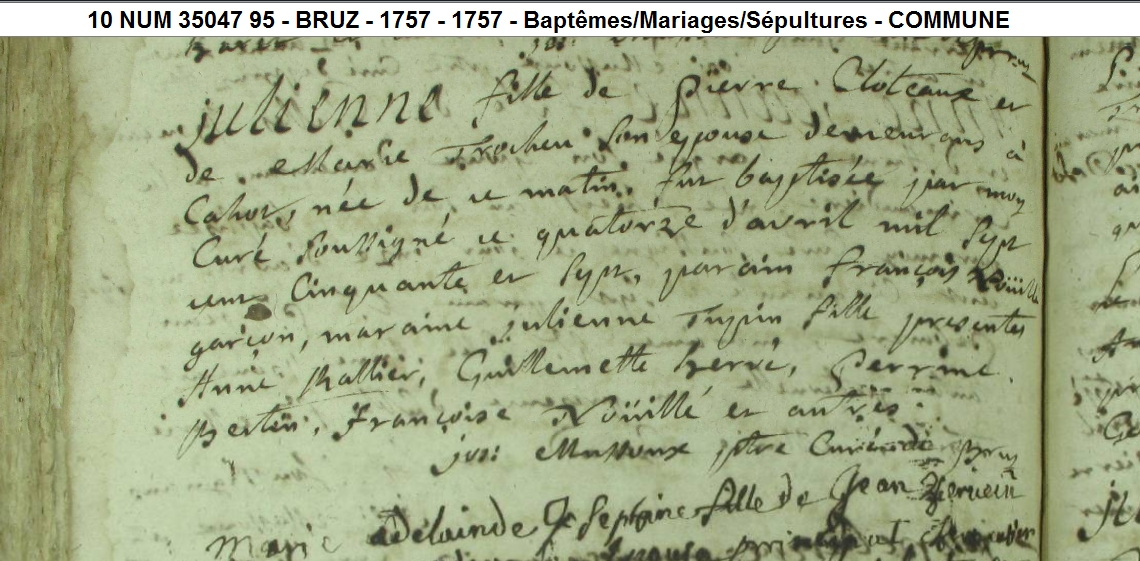 10 NUM 35047 95 - BRUZ - 1757 - 1757 - Baptêmes/Mariages/Sépultures - COMMUNE
julienne fille de pierre Cloteaux et
de Marie Trochu son epouse demeurans à
Cahot, née de ce matin, fut baptisée par moy
Curé soussigné ce quatorze d'avril mil sept
cent Cinquante et sept, parain françois Noüillé
garçon, maraine julienne Tupin fille presentes
Anne Rallier, Guillemette hervé, perrine
Bertin, françoise Noüillé et autres.
jos: ptre Curé de Bruz
Marie Adelainde Josephine fille de Jean